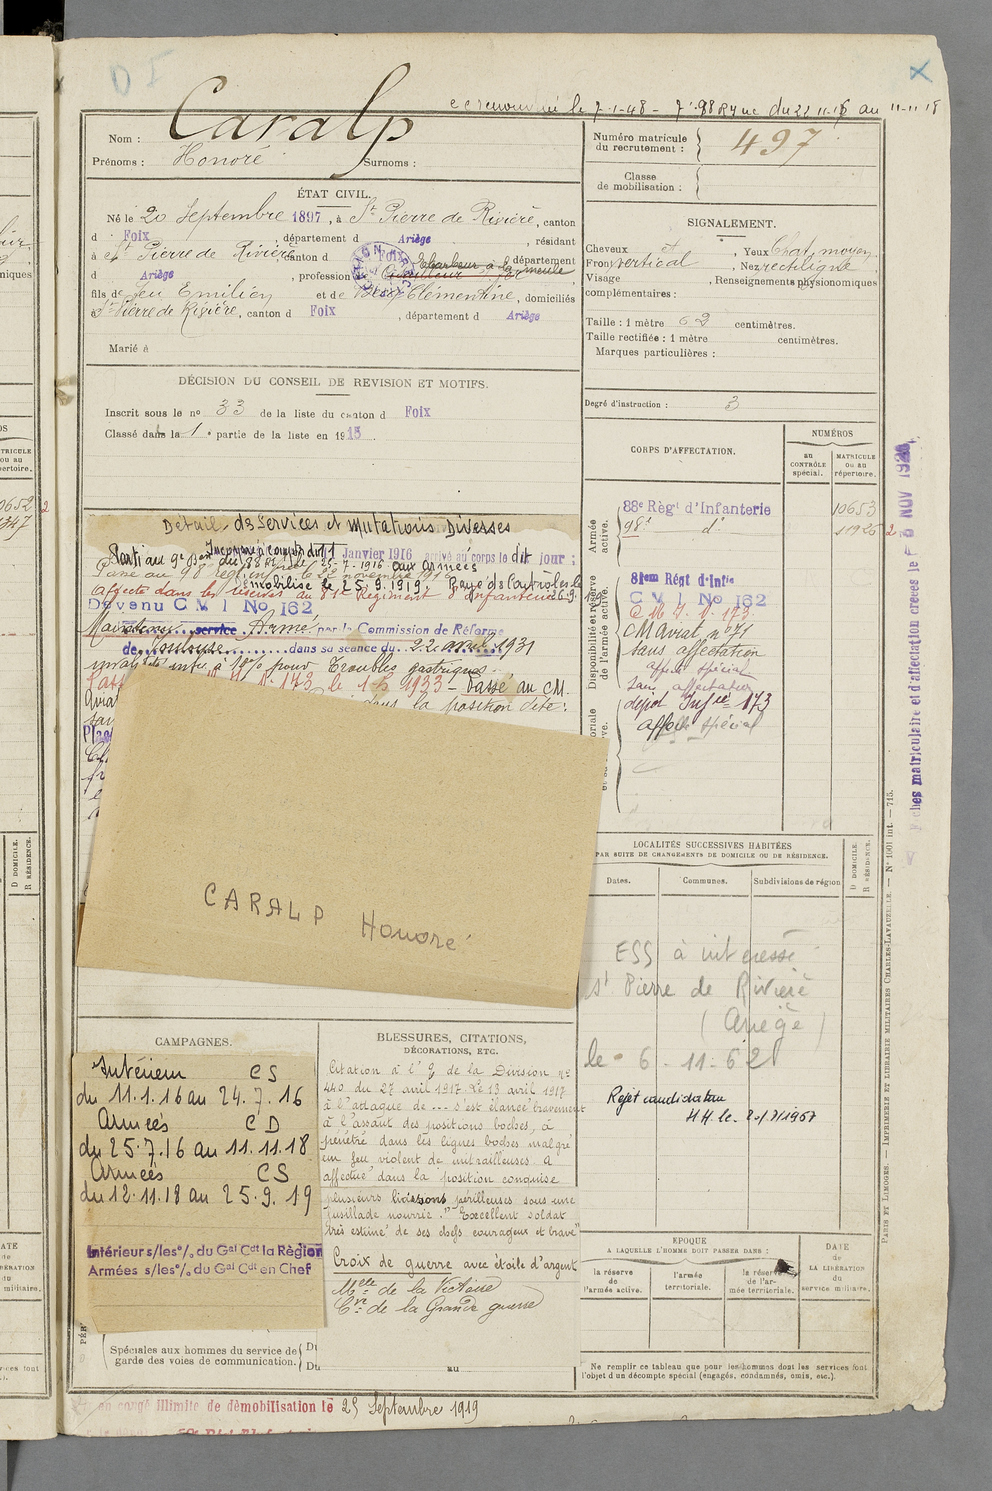 D I
X
le 7-1-48 - 7'-98 R du 22 11-16 au 11-11 18
Nom : Caralp
Prénoms : Honoré Surnoms :
Numéro matricule du recrutement : 497
Classe de mobilisation :
ÉTAT CIVIL.
Né le 20 Septembre 1897, à St Pierre de Rivière, canton
d Foix département d Ariège, résidant
à St Pierre de Rivière canton d Foix département
d Ariège, profession d Ebarbeur à la meule
fils de feu Emilien et de Clémentine, domiciliés
à St Pierre de Rivière, canton d Foix, département d Ariège
Marié à
SIGNALEMENT.
Cheveux et , Yeux Chat. moyen
Front vertical , Nez rectiligne
Visage , Renseignements physionomiques
complémentaires :
Taille : 1 mètre 62 centimètres.
Taille rectifiée : 1 mètre centimètres.
Marques particulières :
Degré d'instruction : 3
DÉCISION DU CONSEIL DE REVISION ET MOTIFS.
Inscrit sous le no 33 de la liste du canton d Foix
Classé dans la 1 partie de la liste en 1915.
CORPS D'AFFECTATION.
NUMÉROS
au CONTRÔLE spécial.
MATRICULE ou au répertoire.
Armée active.
88e Règt d'Infanterie 10653
98e do 11925
Disponibilité et réserve de l'armée active.
81em Régt d'Infie
C V I No 162
C M I No 173
CM Aviat no 71
sans affectation
affecté spécial
sans affectation
dépôt Infie 173
affecté spécial
Détail des Services et Mutations Diverses
Incorporé à compter du 11 Janvier 1916 arrivé au corps le dit jour :
Parti au 9e Bon du 88 RI le 25-7-1916 aux armées
Passé au 98 le 22 novembre 1916
Démobilisé le 25.9.1919. Rayé des Controles le 26.9.19
Affecté dans les réserves au 81e Régiment d'Infanterie
Devenu C V I No 162
Maintenu service Armé par la Commission de Réforme
de Toulouse dans sa séance du 22 1931
invalidité infre à 10% pour Troubles gastriques
173 le 1-5 1933 - Passé au CM.
dans la position dite :
CARALP Honoré
LOCALITÉS SUCCESSIVES HABITÉES
PAR SUITE DE CHANGEMENTS DE DOMICILE OU DE RÉSIDENCE.
Dates. Communes. Subdivisions de région
D DOMICILE.
R RÉSIDENCE.
ESS à intéressé
St Pierre de Rivière
(Ariège)
le 6-11-62
Rejet candidature
CAMPAGNES.
Intérieur CS
du 11.1.16 au 24.7.16
Armées CD
du 25.7.16 au 11.11.18
Armées CS
du 12.11.18 au 25.9.19
Intérieur s/lese/o du Gal Cdt la Région
Armées s/lese/o du Gal Cdt en Chef
Spéciales aux hommes du service de
garde des voies de communication.
Du
Du au
BLESSURES, CITATIONS,
DÉCORATIONS, ETC.
Citation à l'O de la Division no
440 du 27 avril 1917 Le 13 avril 1917
à l'attaque de ... s'est élancé bravement
à l'assaut des positions boches, a
pénétré dans les lignes boches malgré
un feu violent de mitrailleuses. A
affectué dans la position conquise
plusieurs liaisons périlleuses sous une
fusillade nourrie. "Excellent soldat
très estimé de ses chefs courageux et brave"
Croix de guerre avec étoile d'argent
Mlle de la Victoire
Cve de la Grande guerre
EPOQUE
A LAQUELLE L'HOMME DOIT PASSER DANS :
la réserve de l'armée active.
l'armée territoriale.
la réserve de l'armée territoriale.
DATE de LA LIBÉRATION du service militaire.
Ne remplir ce tableau que pour les hommes dont les services font
l'objet d'un décompte spécial (engagés, condamnés, omis, etc.).
en congé illimité de démobilisation le 25 Septembre 1919
PARIS ET LIMOGES. — IMPRIMERIE ET LIBRAIRIE MILITAIRES CHARLES-LAVAUZELLE. — No 1001 int. — 715.
Fiches matriculaire et d'affectation créées le